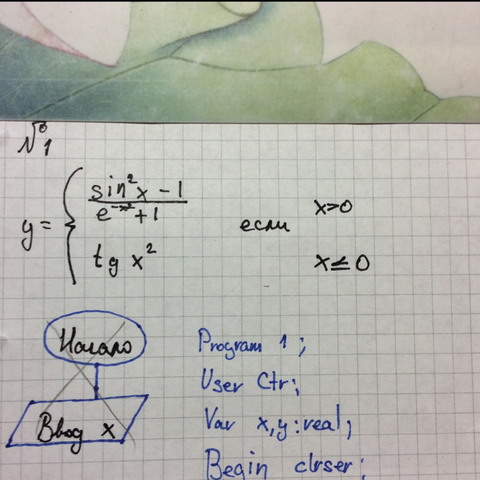 №1
y = { sin²x - 1 / e^-x² + 1
если x>0
tg x²
x≤0
Начало
Ввод x
Program 1;
User Ctr;
Var x,y:real;
Begin clrser;